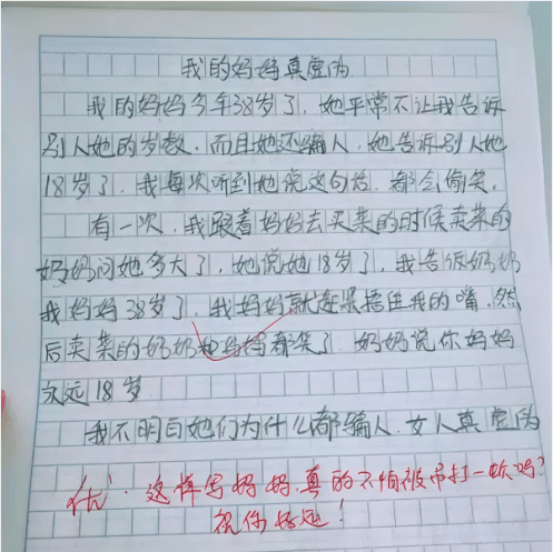 我的妈妈真虚伪
我的妈妈今年38岁了，她平常不让我告诉
别人她的岁数，而且她还骗人，她告诉别人她
18岁了，我每次听到她说这句话，都会偷笑。
有一次，我跟着妈妈去买菜的时候卖菜的
奶奶问她多大了，她说她18岁了，我告诉奶奶
我妈妈38岁了，我妈妈就赶紧捂住我的嘴，然
后卖菜的奶奶和妈妈都笑了，奶奶说你妈妈
永远18岁
我不明白她们为什么都骗人，女人真虚伪
优，这样写妈妈，真的不怕被吊打一顿吗？
祝你好运！